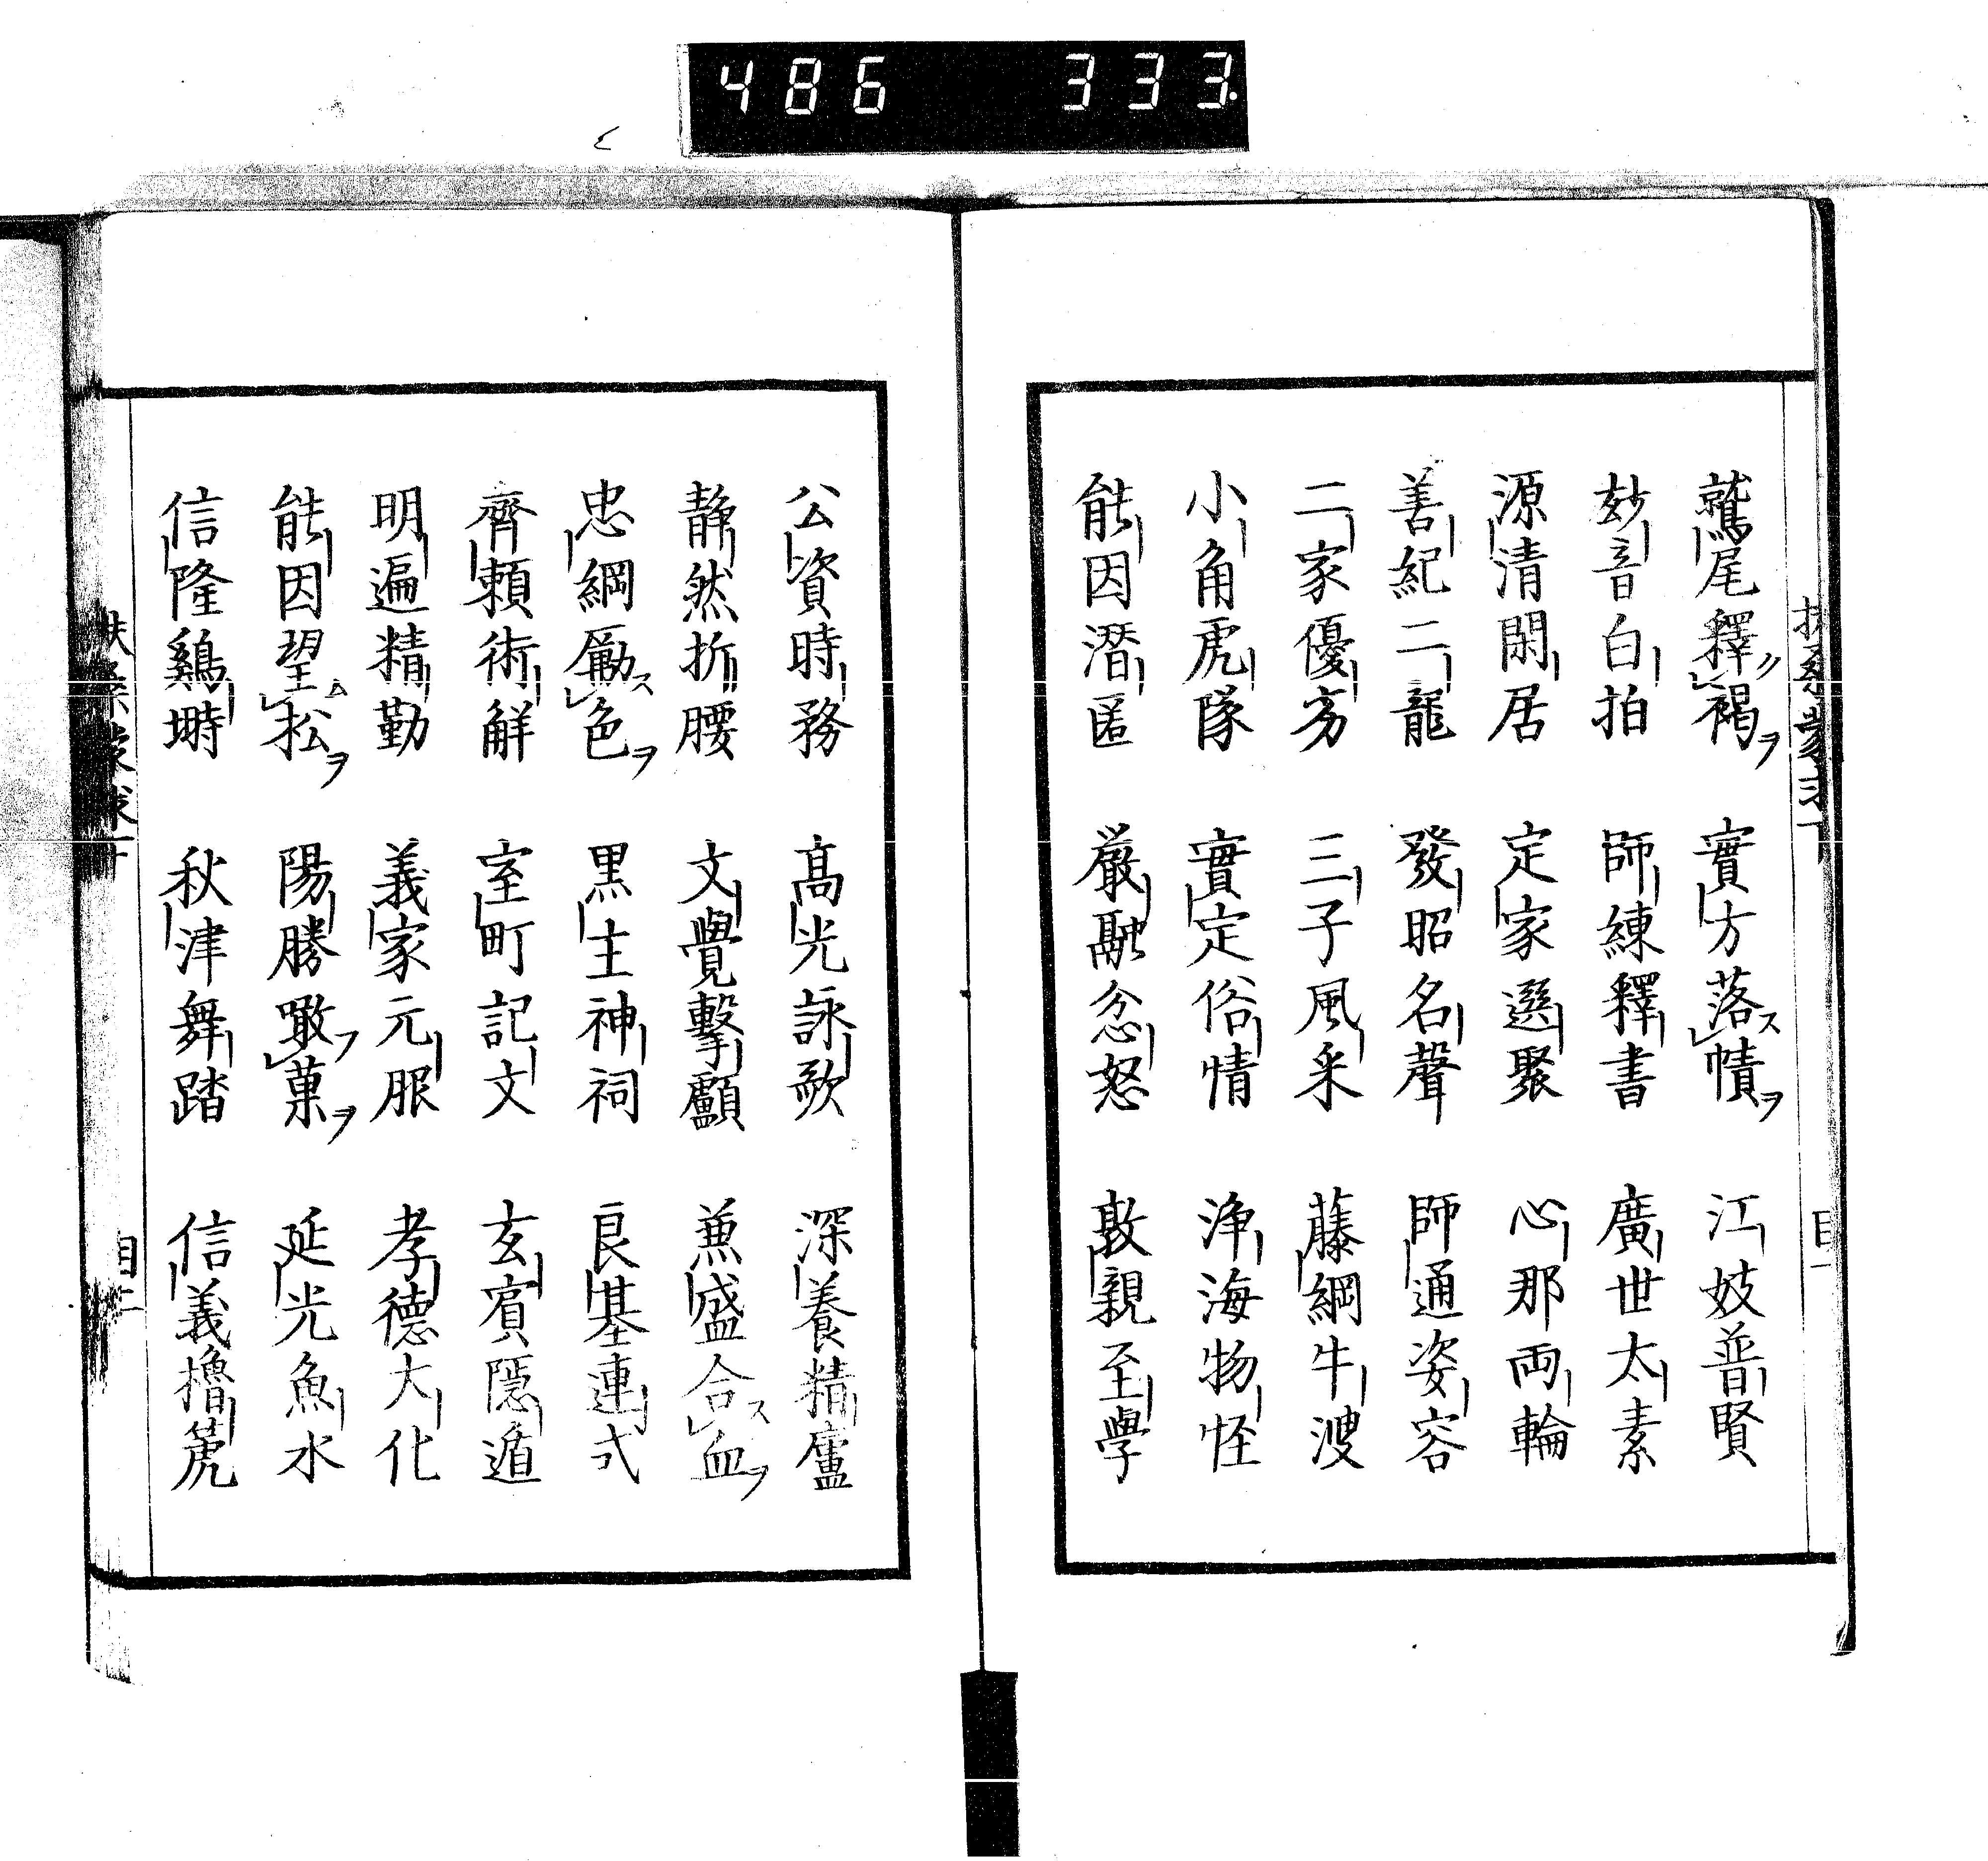 486 333.
扶桑蒙求下 目一
鷲尾釋褐ヲ 實方落ス幘ヲ 江妓普賢
玅音白拍 師練釋書 廣世太素
源清閑居 定家選聚 心那両輪
善紀二龍 發昭名聲 師通姿容
二家優劣 三子風采 藤綱牛溲
小角虎隊 實定俗情 浄海物怪
能因潛匿 嚴融忿怒 敦親至學
公資時務 髙光詠歌 深養精廬
静然折腰 文覺擊顱 兼盛合ス血ヲ
忠綱勵ス色ヲ 黒主神祠 良基連弌
齊頼術鮮 室町記文 玄賓隱遁
明遍精勤 義家元服 孝德大化
能因望ム松ヲ 陽勝噉フ菓ヲ 延光魚水
信隆鷄塒 秋津舞踏 信義櫓篪
扶桑蒙求下 目二